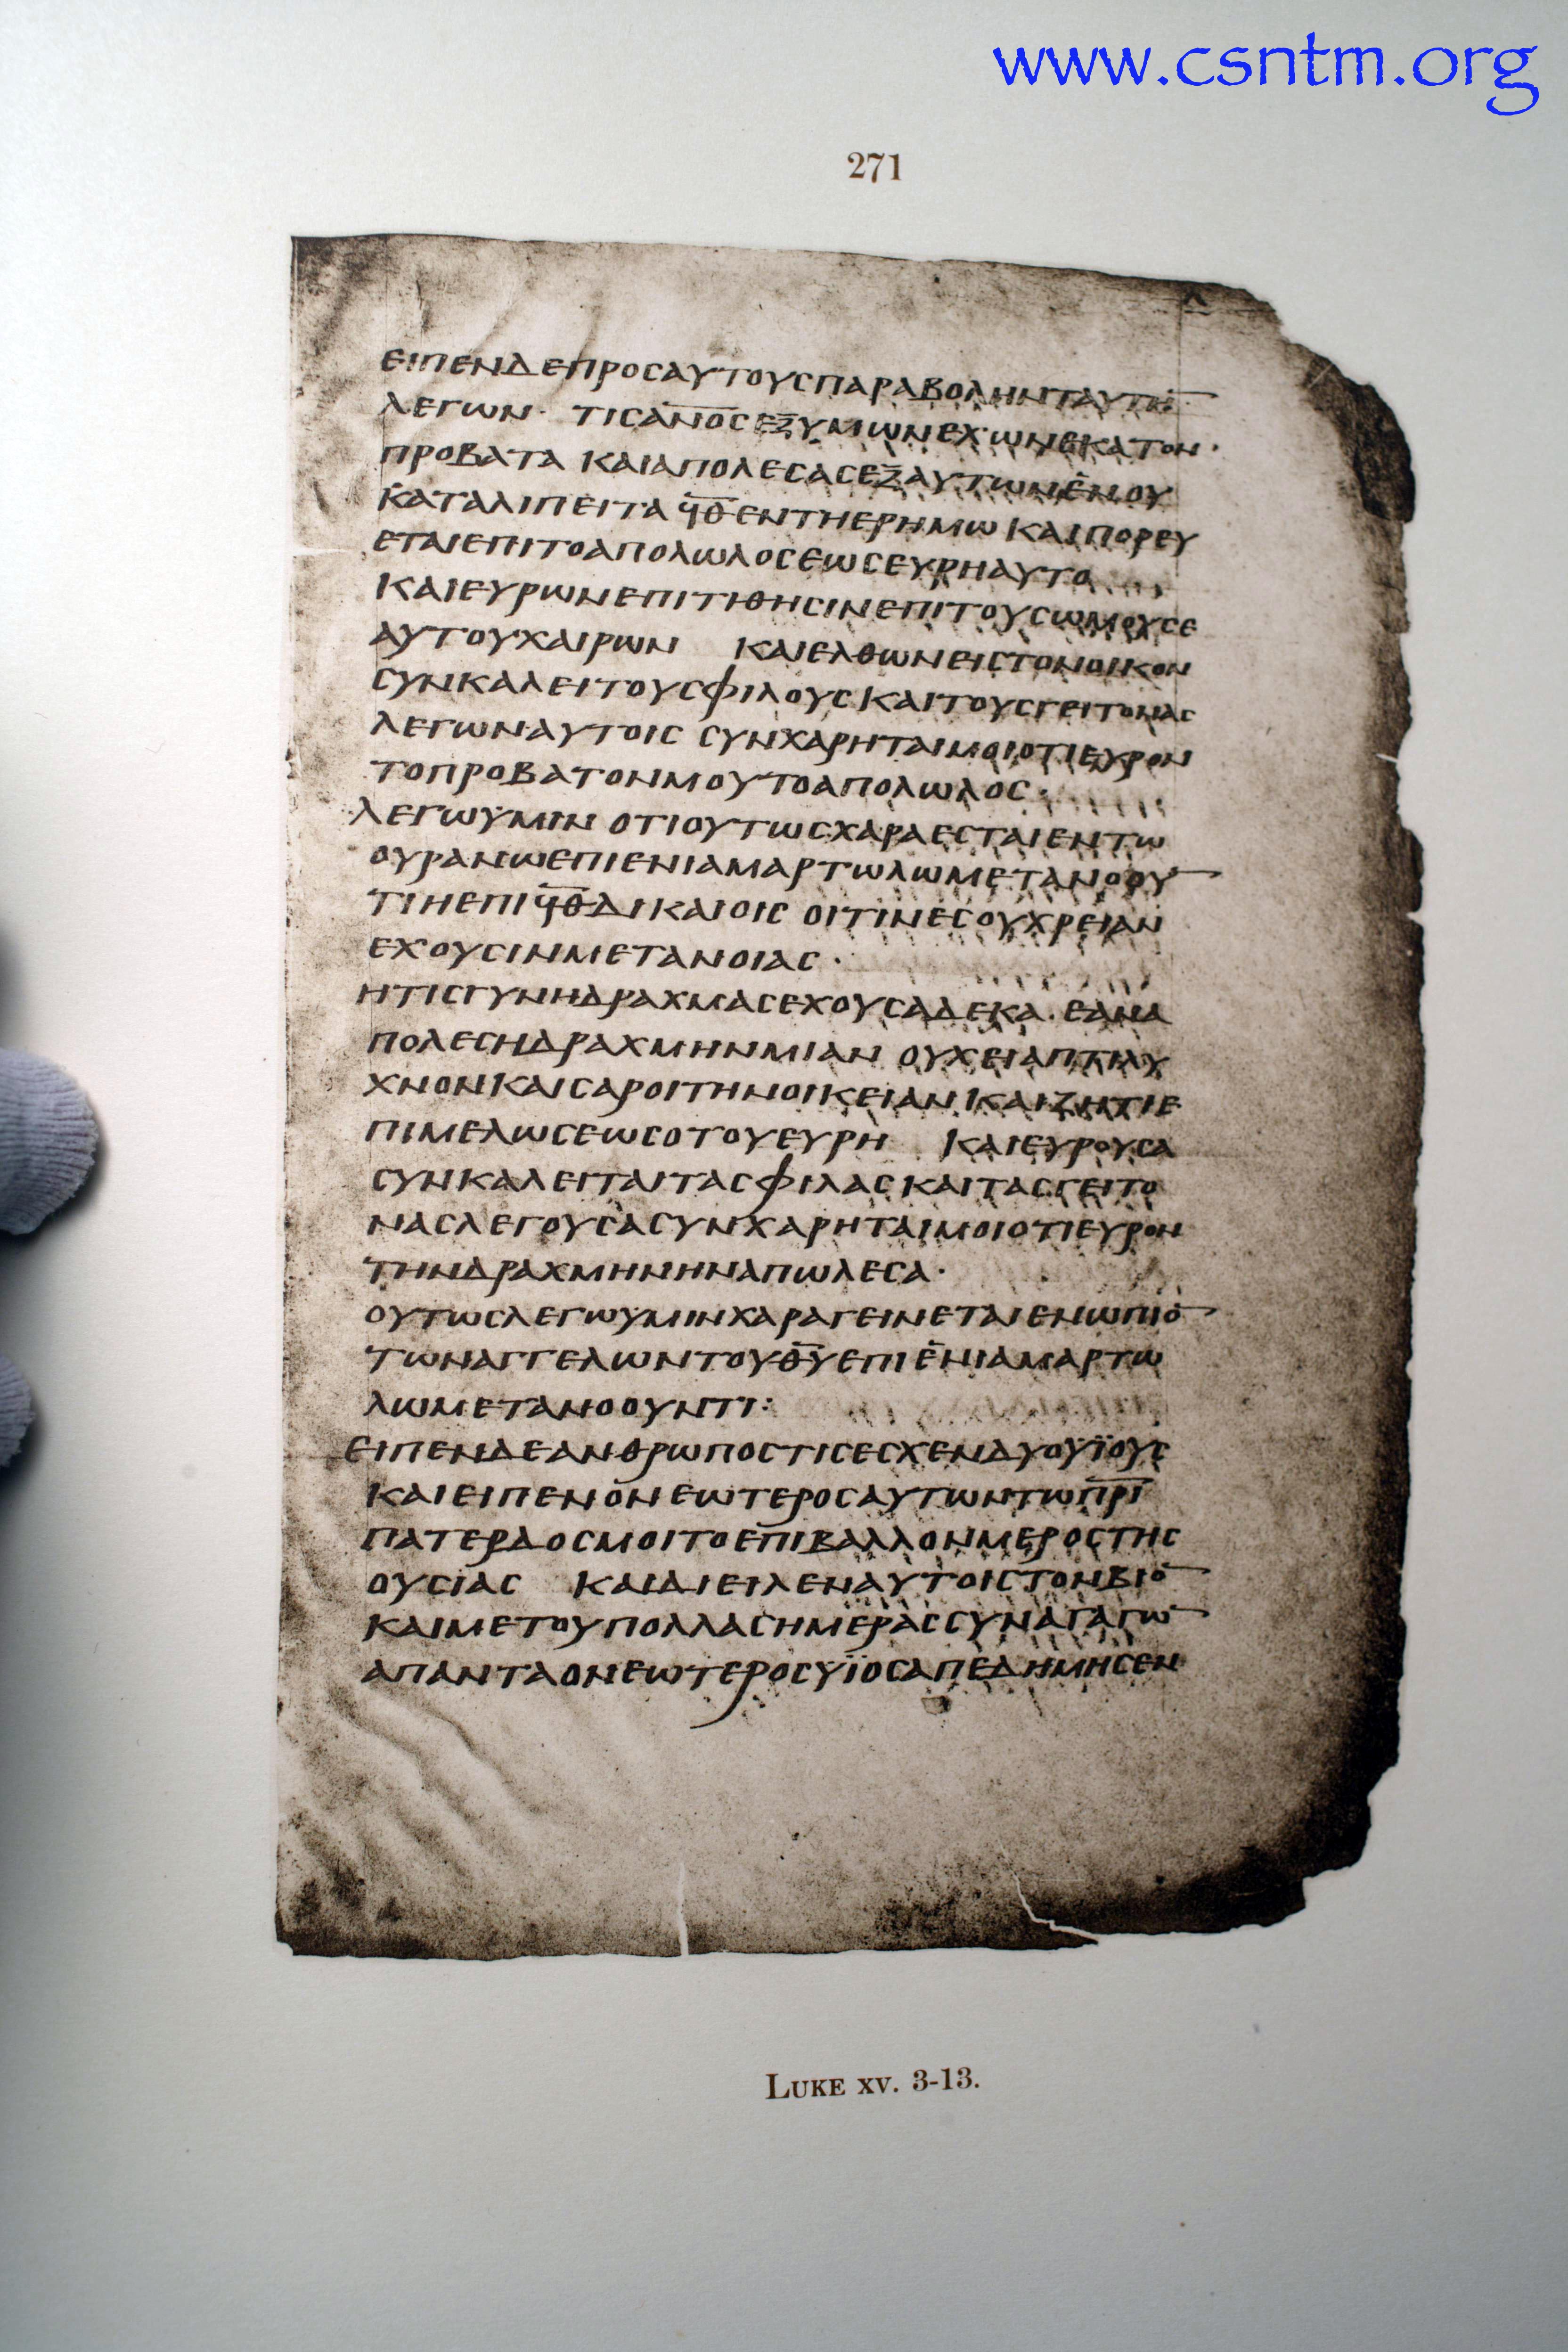 www.csntm.org
271
ΕΙΠΕΝΔΕΠΡΟϹΑΥΤΟΥϹΠΑΡΑΒΟΛΗΝΤΑΥΤΗ̅
ΛΕΓΩΝ· ΤΙϹΑ̅Ν̅Ο̅Ϲ̅ΕΞΥΜΩΝΕΧΩΝΕΚΑΤΟΝ·
ΠΡΟΒΑΤΑ ΚΑΙΑΠΟΛΕϹΑϹΕΞΑΥΤΩΝΕΝΟΥ
ΚΑΤΑΛΙΠΕΙΤΑ Ϟ̅Θ̅ΕΝΤΗΕΡΗΜΩ ΚΑΙΠΟΡΕΥ
ΕΤΑΙΕΠΙΤΟΑΠΟΛΩΛΟϹΕΩϹΕΥΡΗΑΥΤΟ
ΚΑΙΕΥΡΩΝΕΠΙΤΙΘΗϹΙΝΕΠΙΤΟΥϹΩΜΟΥϹΕ
ΑΥΤΟΥΧΑΙΡΩΝ ΚΑΙΕΛΘΩΝΕΙϹΤΟΝΟΙΚΟΝ
ϹΥΝΚΑΛΕΙΤΟΥϹΦΙΛΟΥϹΚΑΙΤΟΥϹΓΕΙΤΟΝΑϹ
ΛΕΓΩΝΑΥΤΟΙϹ ϹΥΝΧΑΡΗΤΑΙΜΟΙΟΤΙΕΥΡΟΝ
ΤΟΠΡΟΒΑΤΟΝΜΟΥΤΟΑΠΟΛΩΛΟϹ·
ΛΕΓΩΫΜΙΝ ΟΤΙΟΥΤΩϹΧΑΡΑΕϹΤΑΙΕΝΤΩ
ΟΥΡΑΝΩΕΠΙΕΝΙΑΜΑΡΤΩΛΩΜΕΤΑΝΟΟΥ̅
ΤΙΗΕΠΙϞ̅Θ̅ΔΙΚΑΙΟΙϹ ΟΙΤΙΝΕϹΟΥΧΡΕΙΑΝ
ΕΧΟΥϹΙΝΜΕΤΑΝΟΙΑϹ·
ΗΤΙϹΓΥΝΗΔΡΑΧΜΑϹΕΧΟΥϹΑΔΕΚΑ·ΕΑΝΑ
ΠΟΛΕϹΗΔΡΑΧΜΗΝΜΙΑΝ ΟΥΧΕΙΑΠΤΙΛΥ
ΧΝΟΝΚΑΙϹΑΡΟΙΤΗΝΟΙΚΕΙΑΝΚΑΙΖΗΤΙΕ
ΠΙΜΕΛΩϹΕΩϹΟΤΟΥΕΥΡΗ ΚΑΙΕΥΡΟΥϹΑ
ϹΥΝΚΑΛΕΙΤΑΙΤΑϹΦΙΛΑϹΚΑΙΤΑϹΓΕΙΤΟ
ΝΑϹΛΕΓΟΥϹΑϹΥΝΧΑΡΗΤΑΙΜΟΙΟΤΙΕΥΡΟΝ
ΤΗΝΔΡΑΧΜΗΝΗΝΑΠΩΛΕϹΑ·
ΟΥΤΩϹΛΕΓΩΫΜΙΝΧΑΡΑΓΕΙΝΕΤΑΙΕΝΩΠΙΟ̅
ΤΩΝΑΓΓΕΛΩΝΤΟΥΘ̅Υ̅ΕΠΙΕΝΙΑΜΑΡΤΩ
ΛΩΜΕΤΑΝΟΟΥΝΤΙ:
ΕΙΠΕΝΔΕΑΝΘΡΩΠΟϹΤΙϹΕϹΧΕΝΔΥΟΥΪΟΥϹ
ΚΑΙΕΙΠΕΝΟΝΕΩΤΕΡΟϹΑΥΤΩΝΤΩΠ̅Ρ̅Ι̅
ΠΑΤΕΡΔΟϹΜΟΙΤΟΕΠΙΒΑΛΛΟΝΜΕΡΟϹΤΗϹ
ΟΥϹΙΑϹ ΚΑΙΔΙΕΙΛΕΝΑΥΤΟΙϹΤΟΝΒΙΟ̅
ΚΑΙΜΕΤΟΥΠΟΛΛΑϹΗΜΕΡΑϹϹΥΝΑΓΑΓΩ̅
ΑΠΑΝΤΑΟΝΕΩΤΕΡΟϹΥΪΟϹΑΠΕΔΗΜΗϹΕΝ
LUKE XV. 3-13.